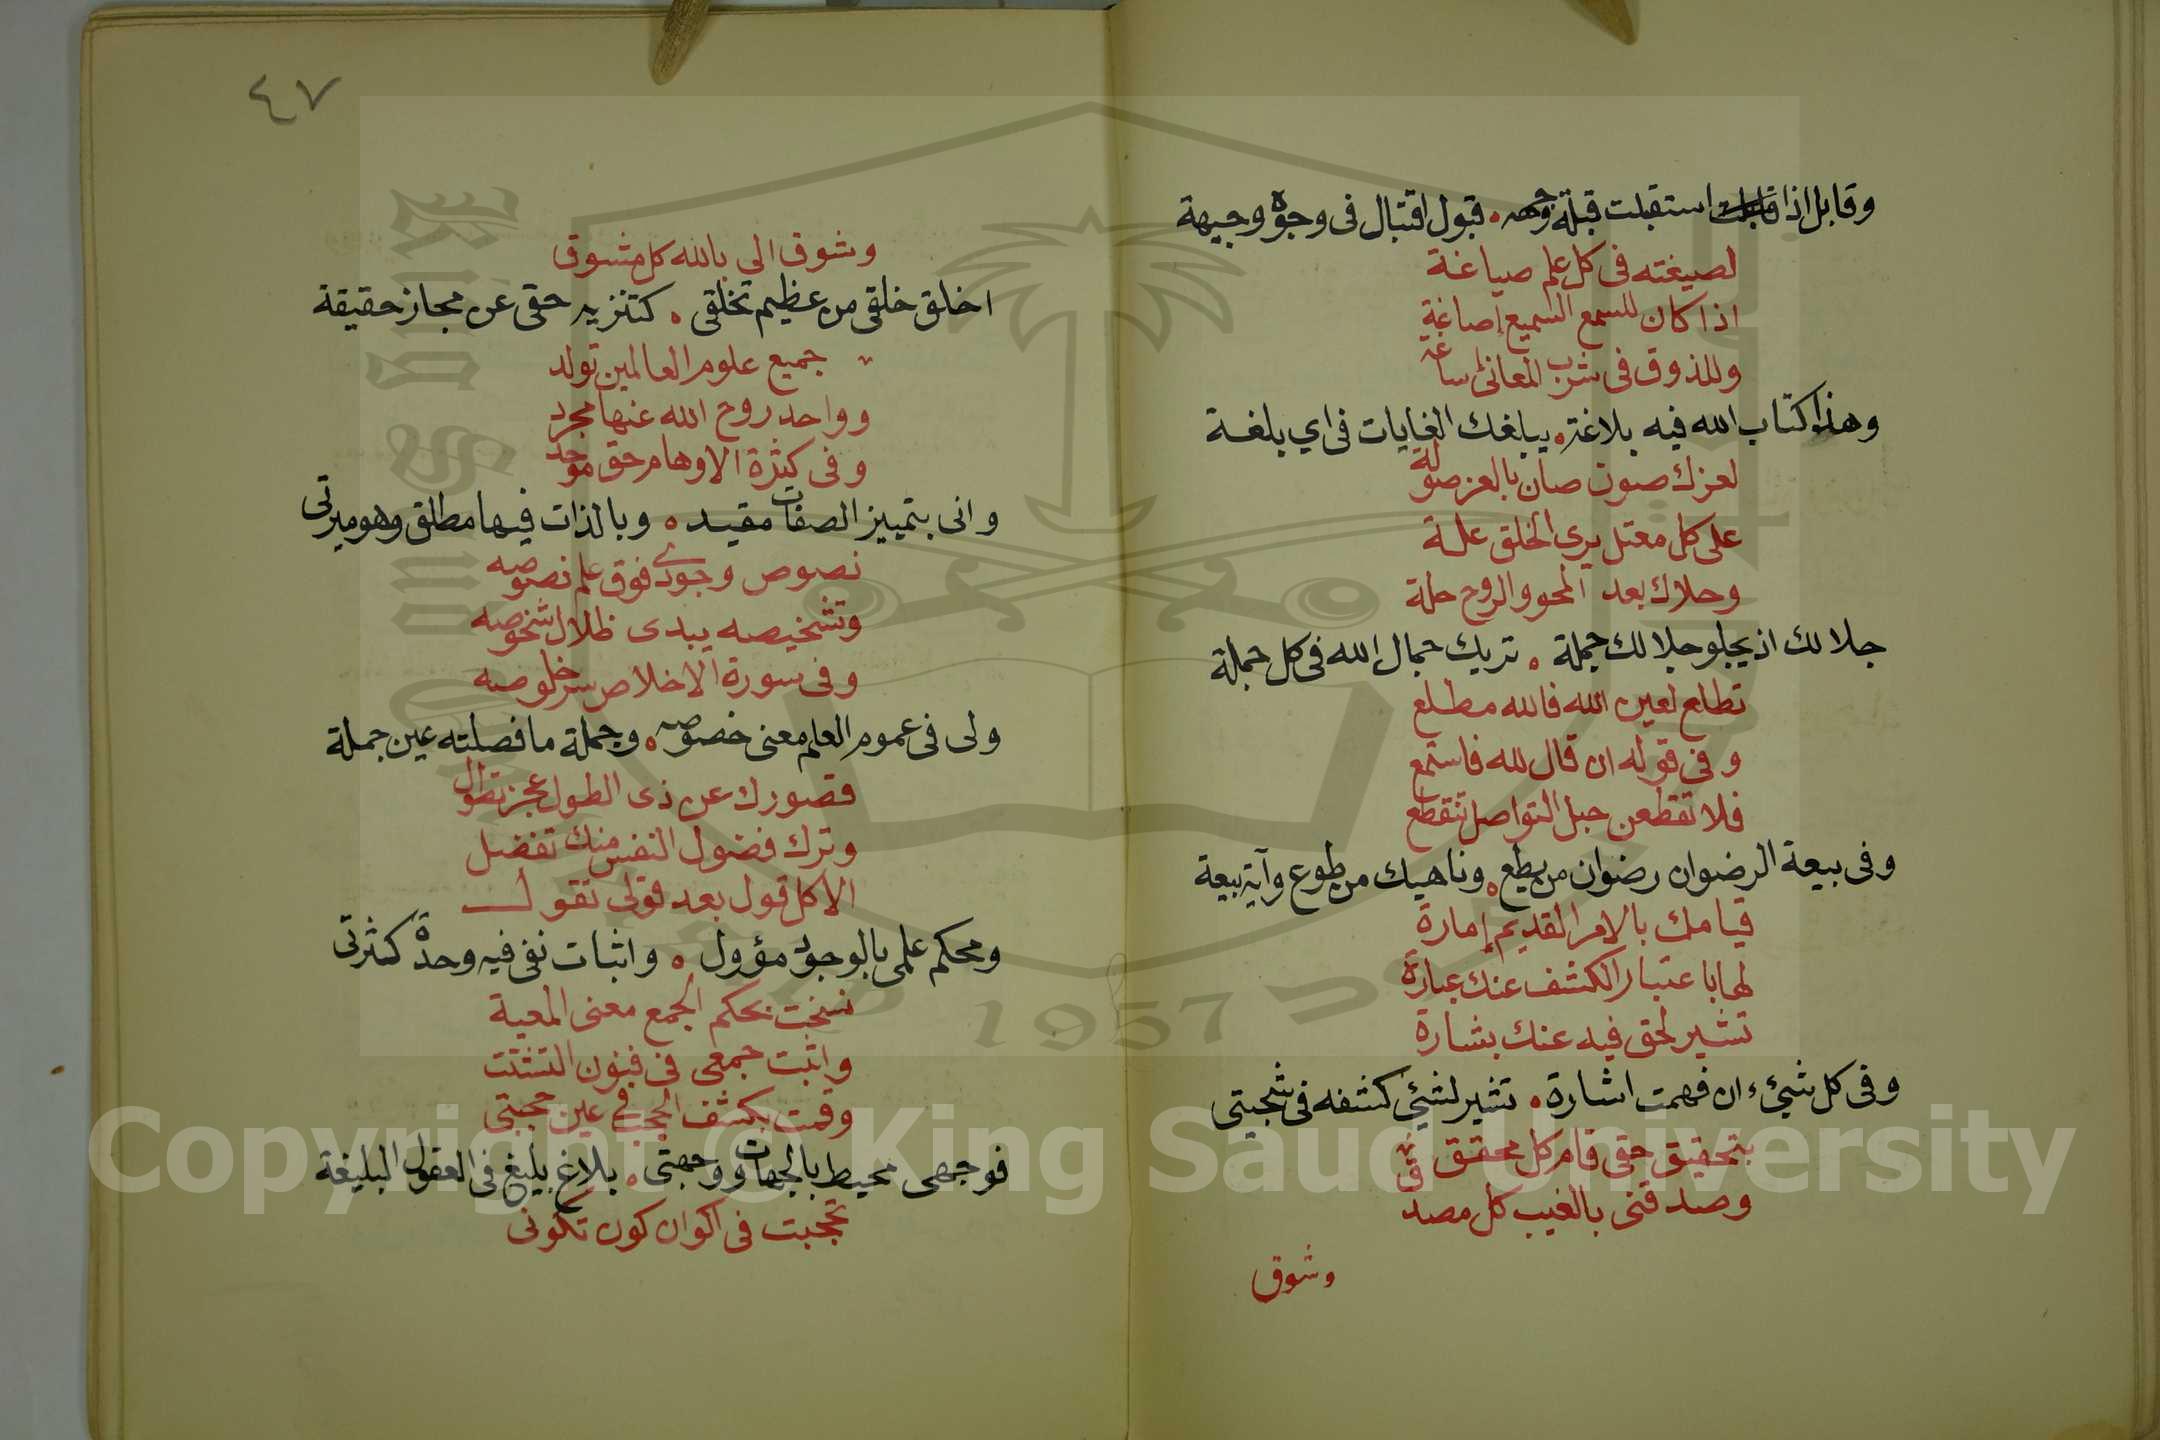 وقابل اذا استقبلت قبلة وجهه . قبول اقتبال فى وجوه وجيهة
لصيغته فى كل علم صياغة
اذا كان للسمع السميع إصاغة
وللذوق فى شرب المعانى ساغه
وهذا كتاب الله فيه بلاغة . يبلغك الغايات فى اي بلغة
لعزك صون صان بالعز صوله
على كل معتل يرى الخلق علة
وحلاك بعد المحو والروح حلة
جلا لك اذ يجلو جلا لك جملة . تريك جمال الله فى كل جملة
تطلع لعين الله فالله مطلع
وفى قوله ان قال لله فاستمع
فلا تقطعن حبل التواصل تنقطع
وفى بيعة الرضوان رضوان من يطع . وناهيك من طوع وآية بيعة
قيامك بالامر القديم إمارة
لها باعتبار الكشف عنك عبارة
تشير لحق فيه عنك بشارة
وفى كل شيء ان فهمت اشارة . تشير لشيء كشفه فى شجيتى
بتحقيق حقى قام كل محقق
وصدقنى بالغيب كل مصدق
وشوق
٤٧
وشوق الى بالله كل مشوق
اخلق خلقى من عظيم تخلقى . كتنزيه حقى عن مجاز حقيقة
جميع علوم العالمين تولد
وواحد روح الله عنها مجرد
وفى كثرة الاوهام حق موحد
وانى بتمييز الصفات مقيد . وبالذات فيها مطلق وهو ميرتى
نصوص وجودى فوق علم نصوصه
وتشخيصه يبدى ظلال شخوصه
وفى سورة الاخلاص سر خلوصه
ولى فى عموم العلم معنى خصوصه . وجملة ما فصلته عين جملة
قصورك عن ذى الطول عجز تطول
وترك فضول النفس منك تفضل
الا كل قول بعد قولى تقول
ومحكم علمى بالوجود مؤول . واثبات نفى فيه وحدة كثرتى
نسخت بحكم الجمع معنى المعية
واثبت جمعى فى فنون التشتت
وقمت بكشف الحجب فى عين حجبتى
فوجهى محيط بالجهات ووجهتى . بلاغ بليغ فى العقول البليغة
تحجبت فى اكوان كون تكونى
King Saud University
1957
Copyright © King Saud University